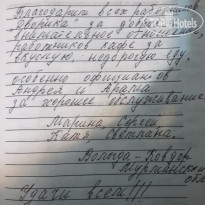 Благодарим всех работников
Дворика за доброе,
внимательное отношение,
работников кафе за
вкусную, недорогую еду,
особенно официантов
Андрея и
за хорошее обслуживание.
Марина, Сергей
Катя Светлана.
Вологда - Ковдор
Мурманская
обл.
Удачи всем!!!